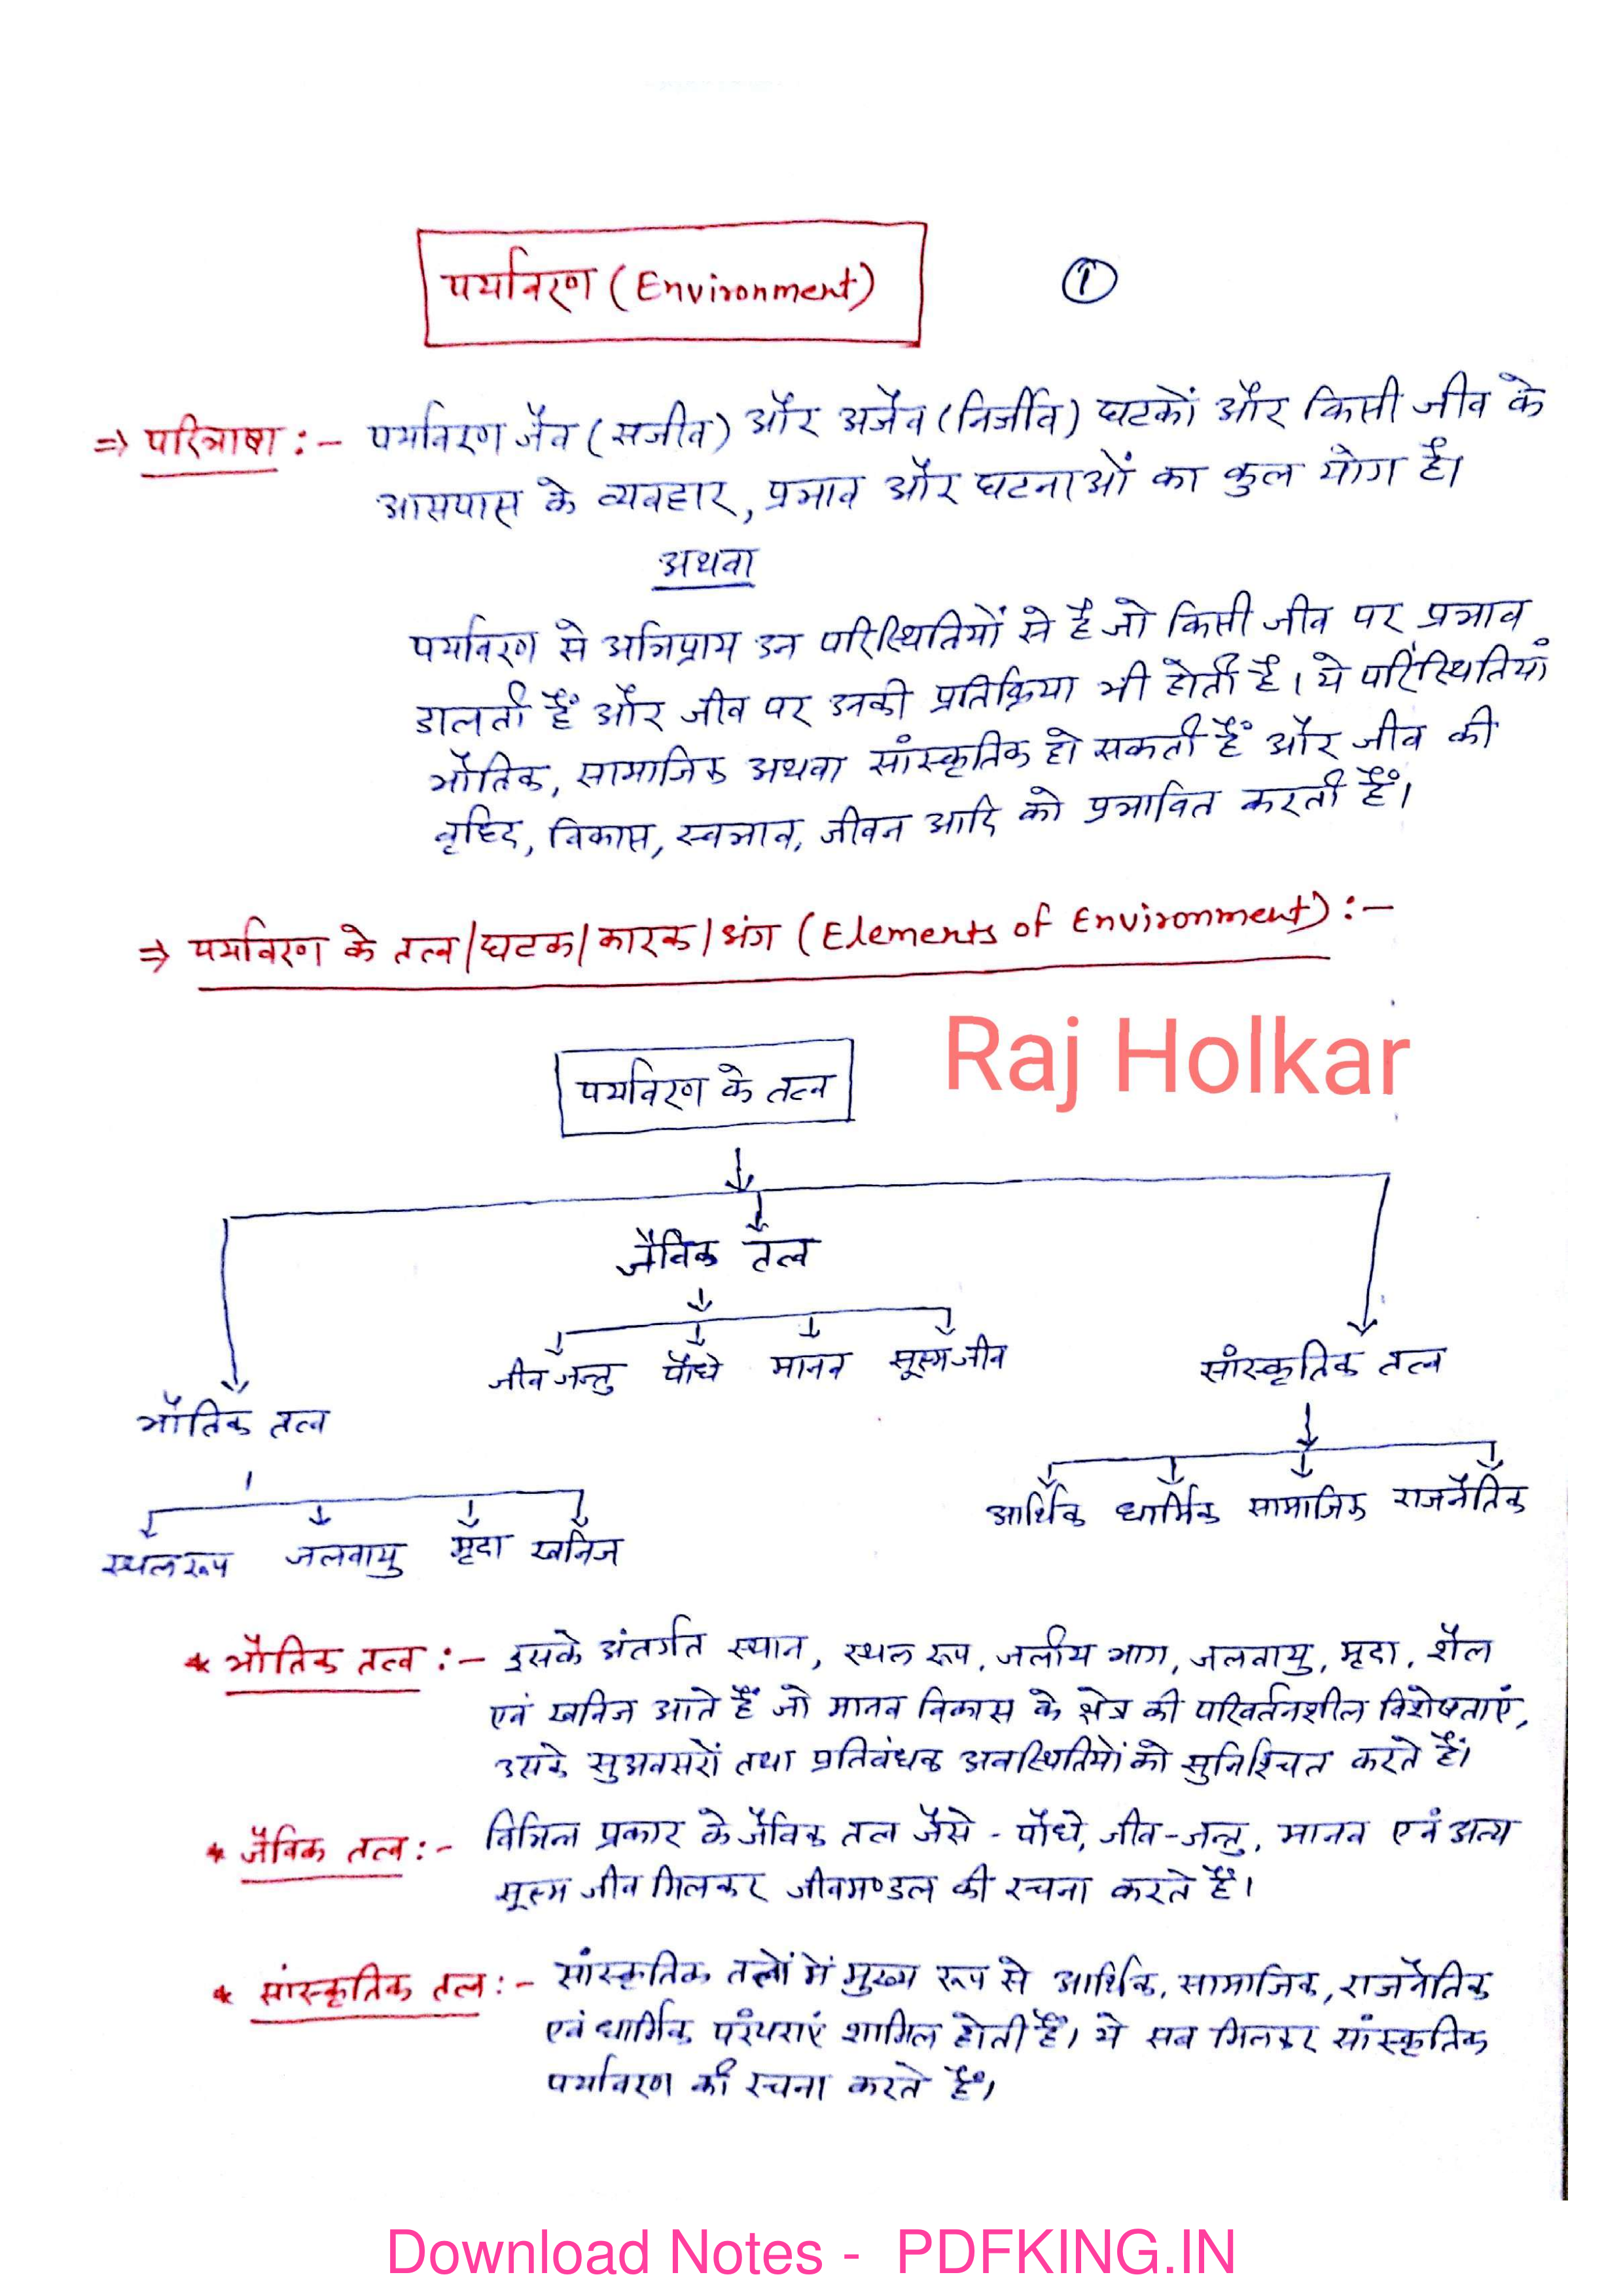 पर्यावरण (Environment)
1
⇒ परिभाषा :- पर्यावरण जैव (सजीव) और अजैव (निर्जीव) घटकों और किसी जीव के
आसपास के व्यवहार, प्रभाव और घटनाओं का कुल योग है।
अथवा
पर्यावरण से अभिप्राय उन परिस्थितियों से है जो किसी जीव पर प्रभाव
डालती हैं और जीव पर उनकी प्रतिक्रिया भी होती है। ये परिस्थितियां
भौतिक, सामाजिक अथवा सांस्कृतिक हो सकती हैं और जीव की
वृद्धि, विकास, स्वभाव, जीवन आदि को प्रभावित करती हैं।
⇒ पर्यावरण के तत्व/घटक/कारक/अंग (Elements of Environment) :-
Raj Holkar
पर्यावरण के तत्व
जैविक तत्व
जीव जन्तु पौधे मानव सूक्ष्म जीव
सांस्कृतिक तत्व
भौतिक तत्व
आर्थिक धार्मिक सामाजिक राजनैतिक
स्थल रूप जलवायु मृदा खनिज
* भौतिक तत्व :- इसके अंतर्गत स्थान, स्थल रूप, जलीय भाग, जलवायु, मृदा, शैल
एवं खनिज आते हैं जो मानव विकास के क्षेत्र की परिवर्तनशील विशेषताएं,
उसके सुअवसरों तथा प्रतिबंधक अवस्थितियों को सुनिश्चित करते हैं।
* जैविक तत्व :- विभिन्न प्रकार के जैविक तत्व जैसे - पौधे, जीव-जन्तु, मानव एवं अन्य
सूक्ष्म जीव मिलकर जीवमण्डल की रचना करते हैं।
* सांस्कृतिक तत्व :- सांस्कृतिक तत्वों में मुख्य रूप से आर्थिक, सामाजिक, राजनैतिक
एवं धार्मिक परंपराएं शामिल होती हैं। ये सब मिलकर सांस्कृतिक
पर्यावरण की रचना करते हैं।
Download Notes - PDFKING.IN